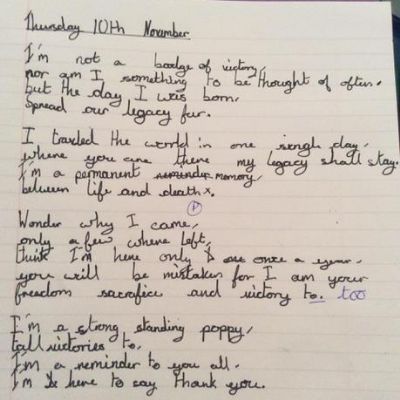 Thursday 10th November
I'm not a badge of victory,
nor am I something to be thought of often.
but the day I was born,
Spread our legacy far.
I traveled the world in one single day,
where you are there my legacy shall stay.
I'm a permanent reminder memory,
between life and death x.
Wonder why I came,
only a few where left,
think I'm here only once a year,
you will be mistaken for I am your
freedom sacrafice and victory to. too
I'm a strong standing poppy,
tall victories to,
I'm a reminder to you all.
I'm here to say thank you.